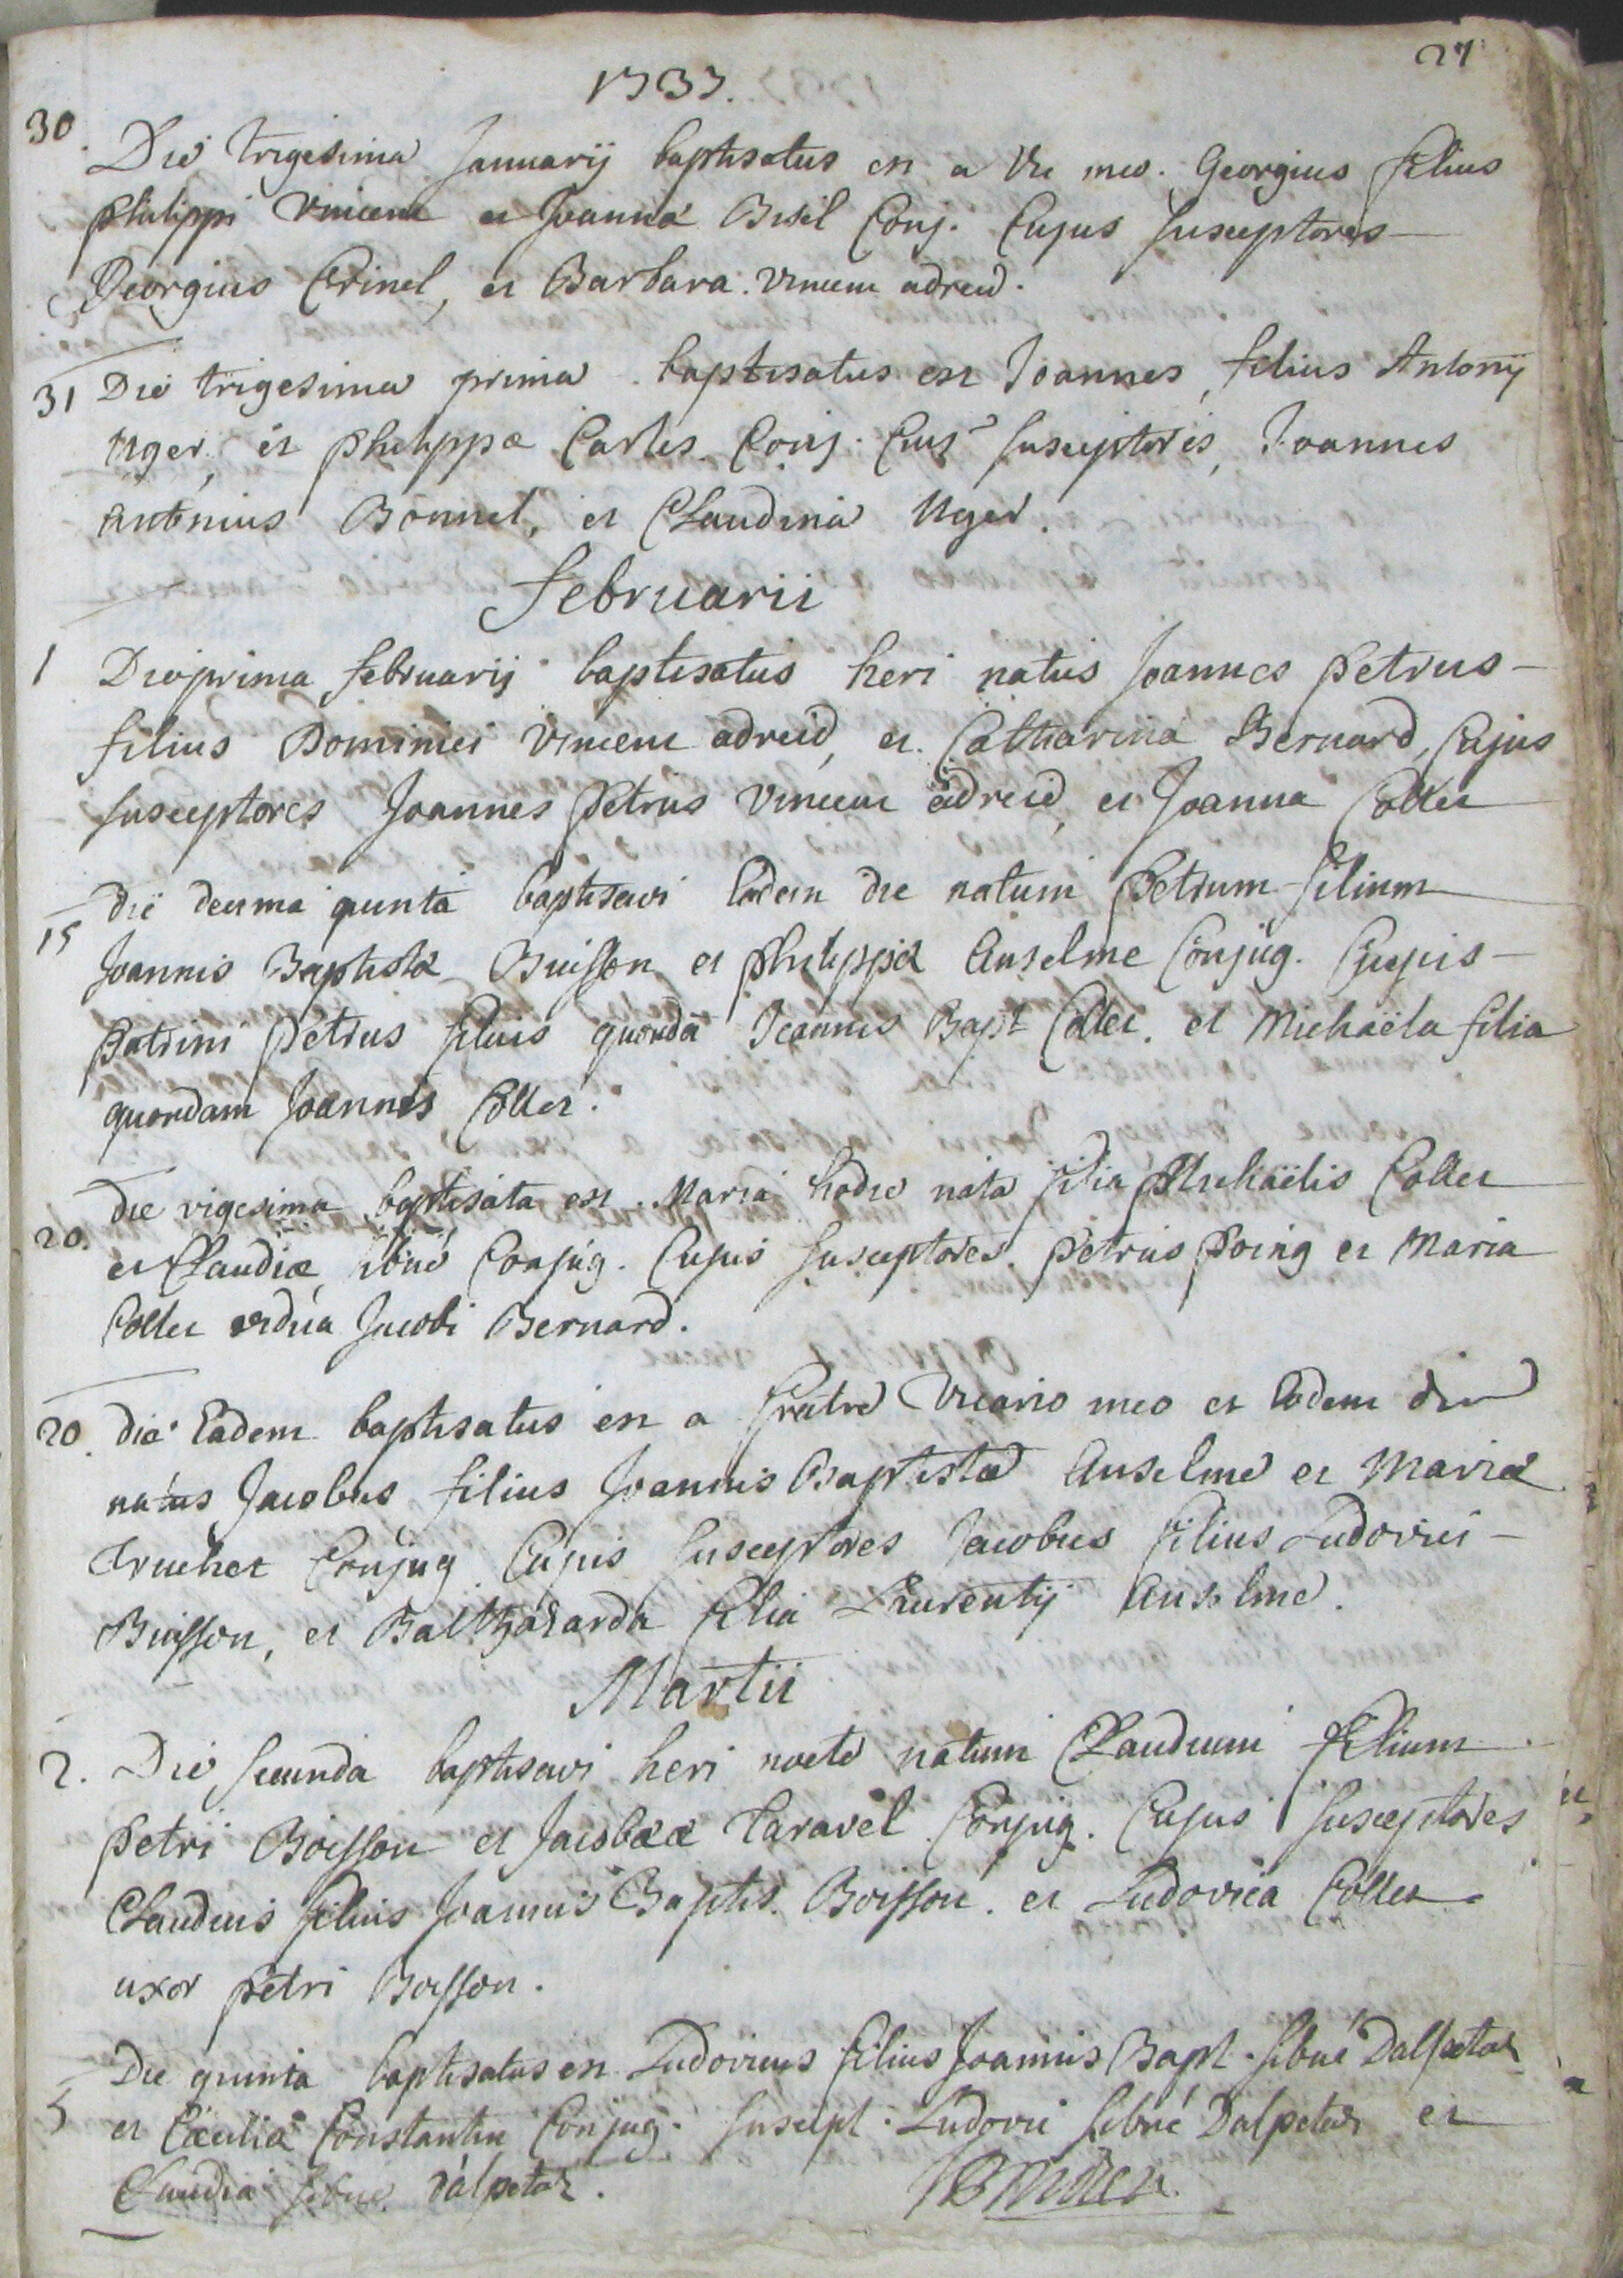 27
1733.
30. Die trigesima Januarij baptisatus est a Vic meo. Georgius filius
Philippi Vincent et Joannæ Bisil Conj. Cujus susceptores
Georgius Crinel, et Barbara Vincent adreid.
31 Die trigesima prima baptisatus est Joannes, filius Antonij
Uger, et Philippæ Carles Conj. susceptores, Joannes
Antonius Bonnel, et Claudina Uger.
Februarii
1 Die prima februarij baptisatus heri natus Joannes Petrus
filius Dominici Vincent adreid, et Catharina Bernard, Cujus
susceptores Joannes Petrus Vincent adreid, et Joanna Collet
15 die decima quinta baptisavi Eadem die natum Petrum filium
Joannis Baptistæ Buisson et Philippæ Anselme Conjug. Cujus
Patrini Petrus filius quondã Joannis Bapt Collet. et Michaëla filia
quondam Joannis Collet.
20. die vigesima baptisata est Maria hodie nata filia Michaëlis Collet
et Claudiæ sibué Conjug. Cujus susceptores. Petrus Poing et Maria
Collet vidua Jacobi Bernard.
20. die Eadem baptisatus est a fratre Vicario meo et Eadem die
natus Jacobus filius Joannis Baptistæ Anselme et Mariæ
Truchet Conjug Cujus susceptores Jacobus filius Ludovici
Buisson, et Balthazarda filia Laurentij Anselme.
Martii
2. Die secunda baptisavi heri nocte natum Claudium filium
Petri Boisson et Jacobææ Caravel Conjug. Cujus susceptores
Claudius filius Joannis Baptis. Boisson. et Ludovica Collet
uxor Petri Boisson.
5 Die quinta baptisatus est Ludovicus filius Joannis Bapt. sibué Dalpetaz
et Cæcilia Constantin Conjug. suscept. Ludovi sibué Dalpetaz et
Claudia sibue Dalpetaz.